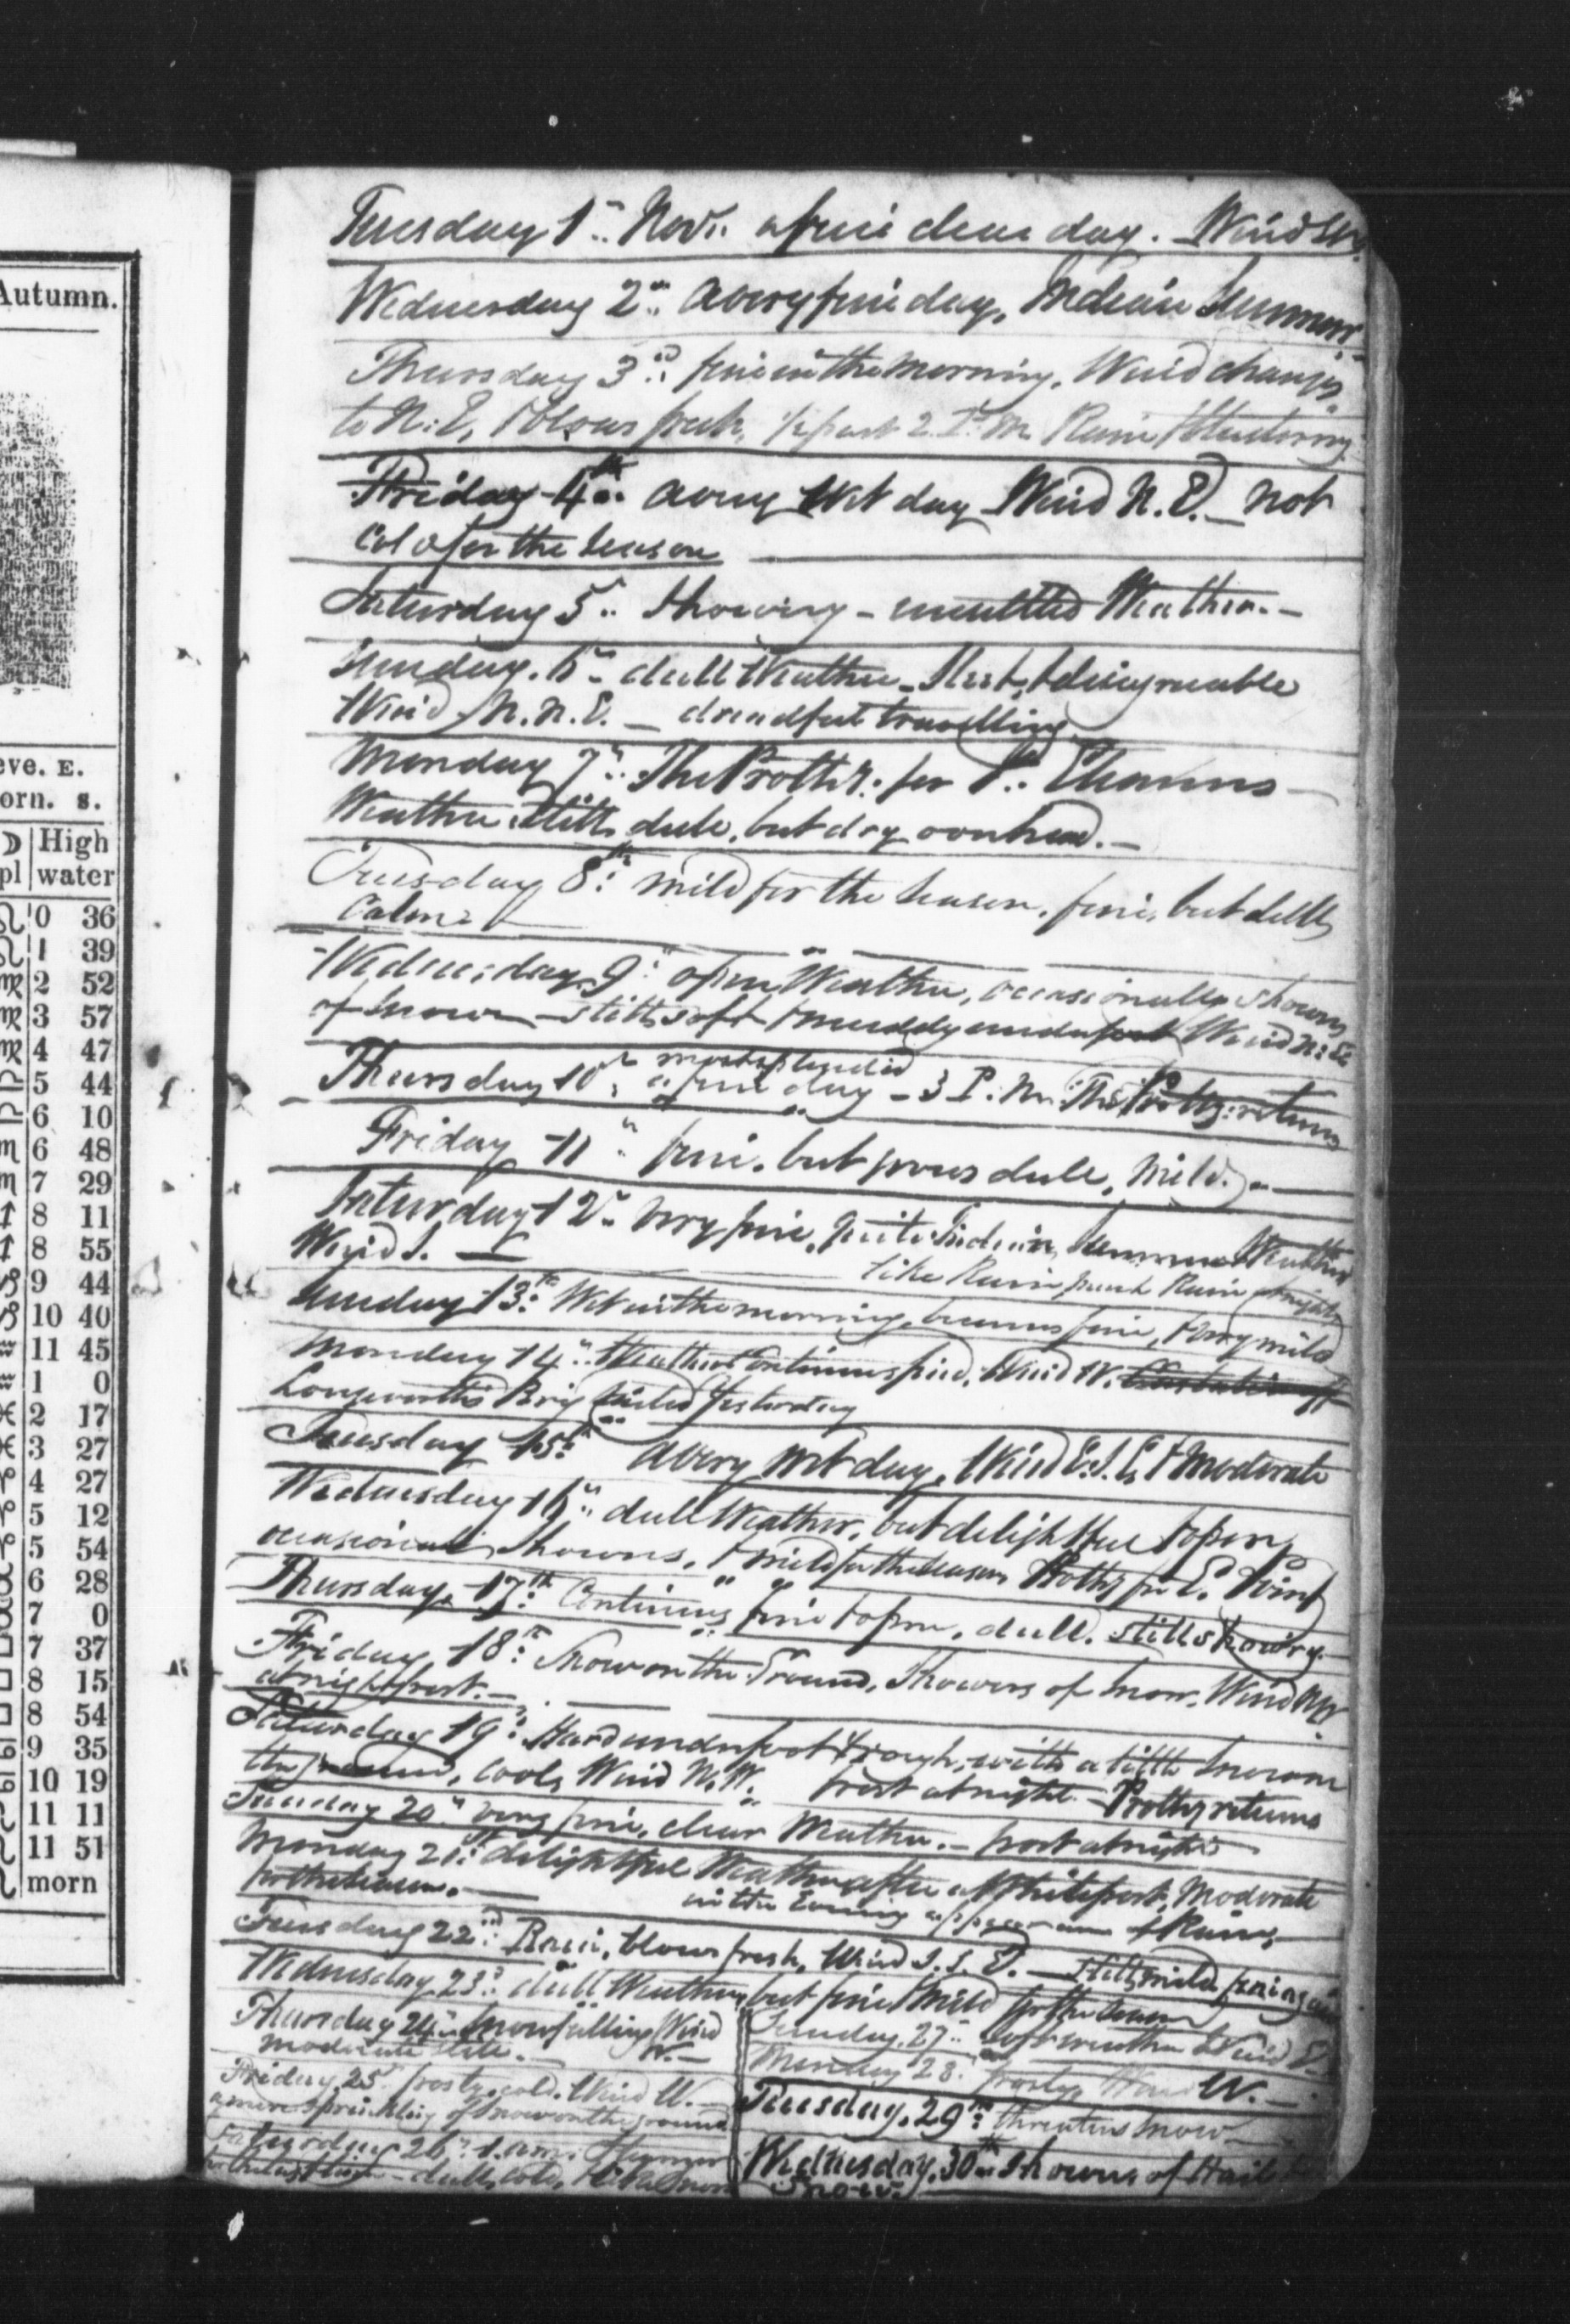 Autumn.
eve. E.
orn. s.
High
pl water
0 36
1 39
2 52
3 57
4 47
5 44
6 10
6 48
7 29
8 11
8 55
9 44
10 40
11 45
1 0
2 17
3 27
4 27
5 12
5 54
6 28
7 0
7 37
8 15
8 54
9 35
10 19
11 11
11 51
morn
Tuesday 1st Novr. a fine clear day. Wind SW.
Wednesday 2nd a very fine day, Indian Summer
Thursday 3rd fine in the morning, Wind changes
to N.E, & blows fresh, ½ past 2 P.M. Rain &
Friday 4th a very Wet day Wind N.E. not
Cold for the Season
Saturday 5th Showery - unsettled Weather. -
Sunday. 6th dull Weather - Sleet, & disagreeable
Wind N.N.E. - dreadful travelling
Monday 7th The Prothy. for
Weather still dull, but dry overhead. -
Tuesday 8th mild for the Season, fine, but dull,
Calm
Wednesday 9th open Weather, occasionally Showers
of Snow - still soft & muddy underfoot Wind N:E
most splendid
Thursday 10th a fine day - 3 P.M. The Prothy: returns
Friday 11th fine, but grows dull, mild. -
Saturday 12th very fine, quite Indian Summer Weather
Wind S. - like Rain Rain at night
Sunday 13th Wet in the morning, becomes fine, & very mild
Monday 14th Weather Continues fine, Wind W.
Longworth's Brig sailed Yesterday
Tuesday 15th a very wet day, Wind E.S.E, & Moderate
Wednesday 16th dull Weather, but delightful & open,
occasional Showers, & mild for the Season Prothy for E. Point
Thursday, 17th Continues fine & open, dull. still showery.
Friday 18th Snow on the Ground, Showers of Snow, Wind NW
at night frost. -
Saturday 19th Hard underfoot & rough, with a little Snow on
the ground, Cool, Wind N.W. frost at night - Prothy returns
Sunday 20th very fine, clear Weather. - frost at night
Monday 21st delightful Weather after a White frost, Moderate
for the Season. - in the Evening appearance of Rain,
Tuesday 22nd Rain, blows fresh, Wind S.S.E. - still mild
Wednesday 23rd dull Weather, but fine & mild for the Season
Thursday 24th Snow falling Wind
moderate still. - W. -
Friday, 25th frosty, cold. Wind W. -
a mere sprinkling of snow on the ground
Saturday 26th
dull, cold,
Sunday, 27th soft weather Wind E.
Monday 28th frosty, Wind W. -
Tuesday, 29th threatens snow -
Wednesday, 30th Showers of Hail
Snow.